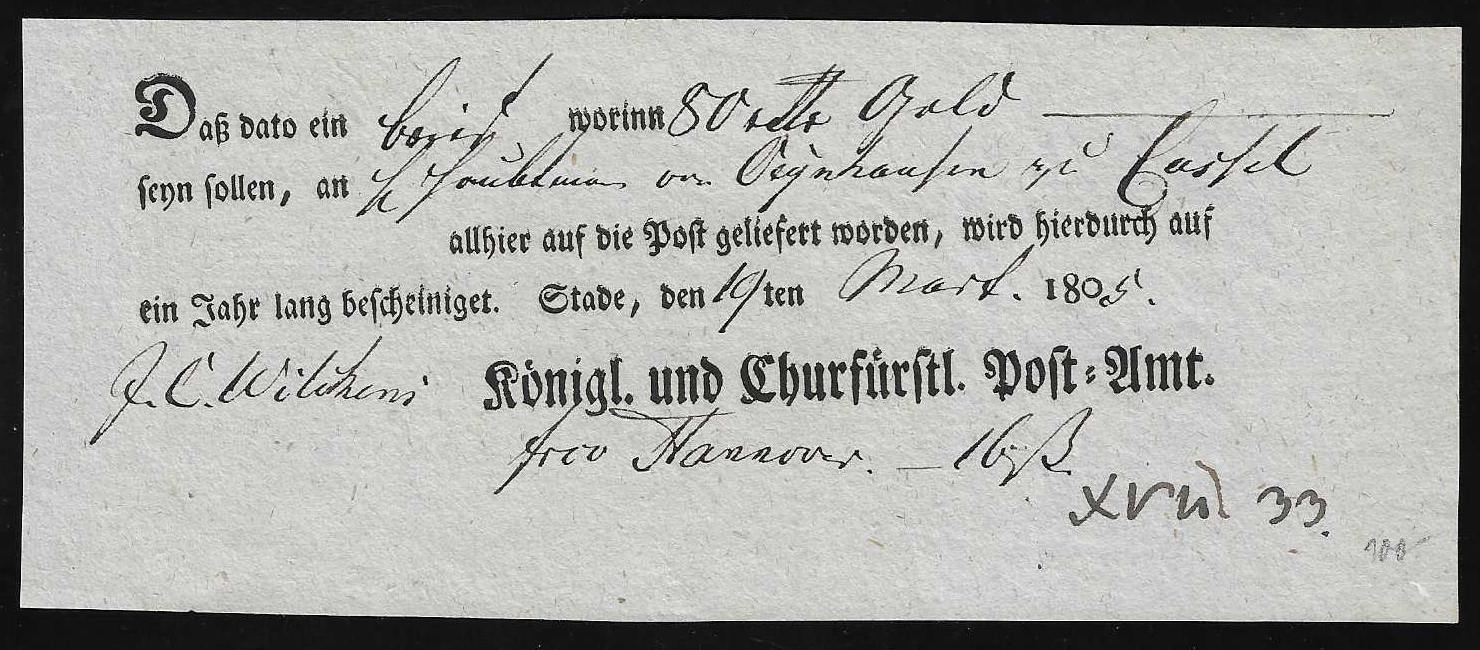 Daß dato ein brief worinn 80 rthlr Gold
seyn sollen, an H Haubtman von Oeynhausen zu Cassel
allhier auf die Post geliefert worden, wird hierdurch auf
ein Jahr lang bescheiniget. Stade, den 19ten Mart. 1805.
J. C. Wilckens Königl. und Churfürstl. Post-Amt.
frco Hannover. — 16
XVII 33.